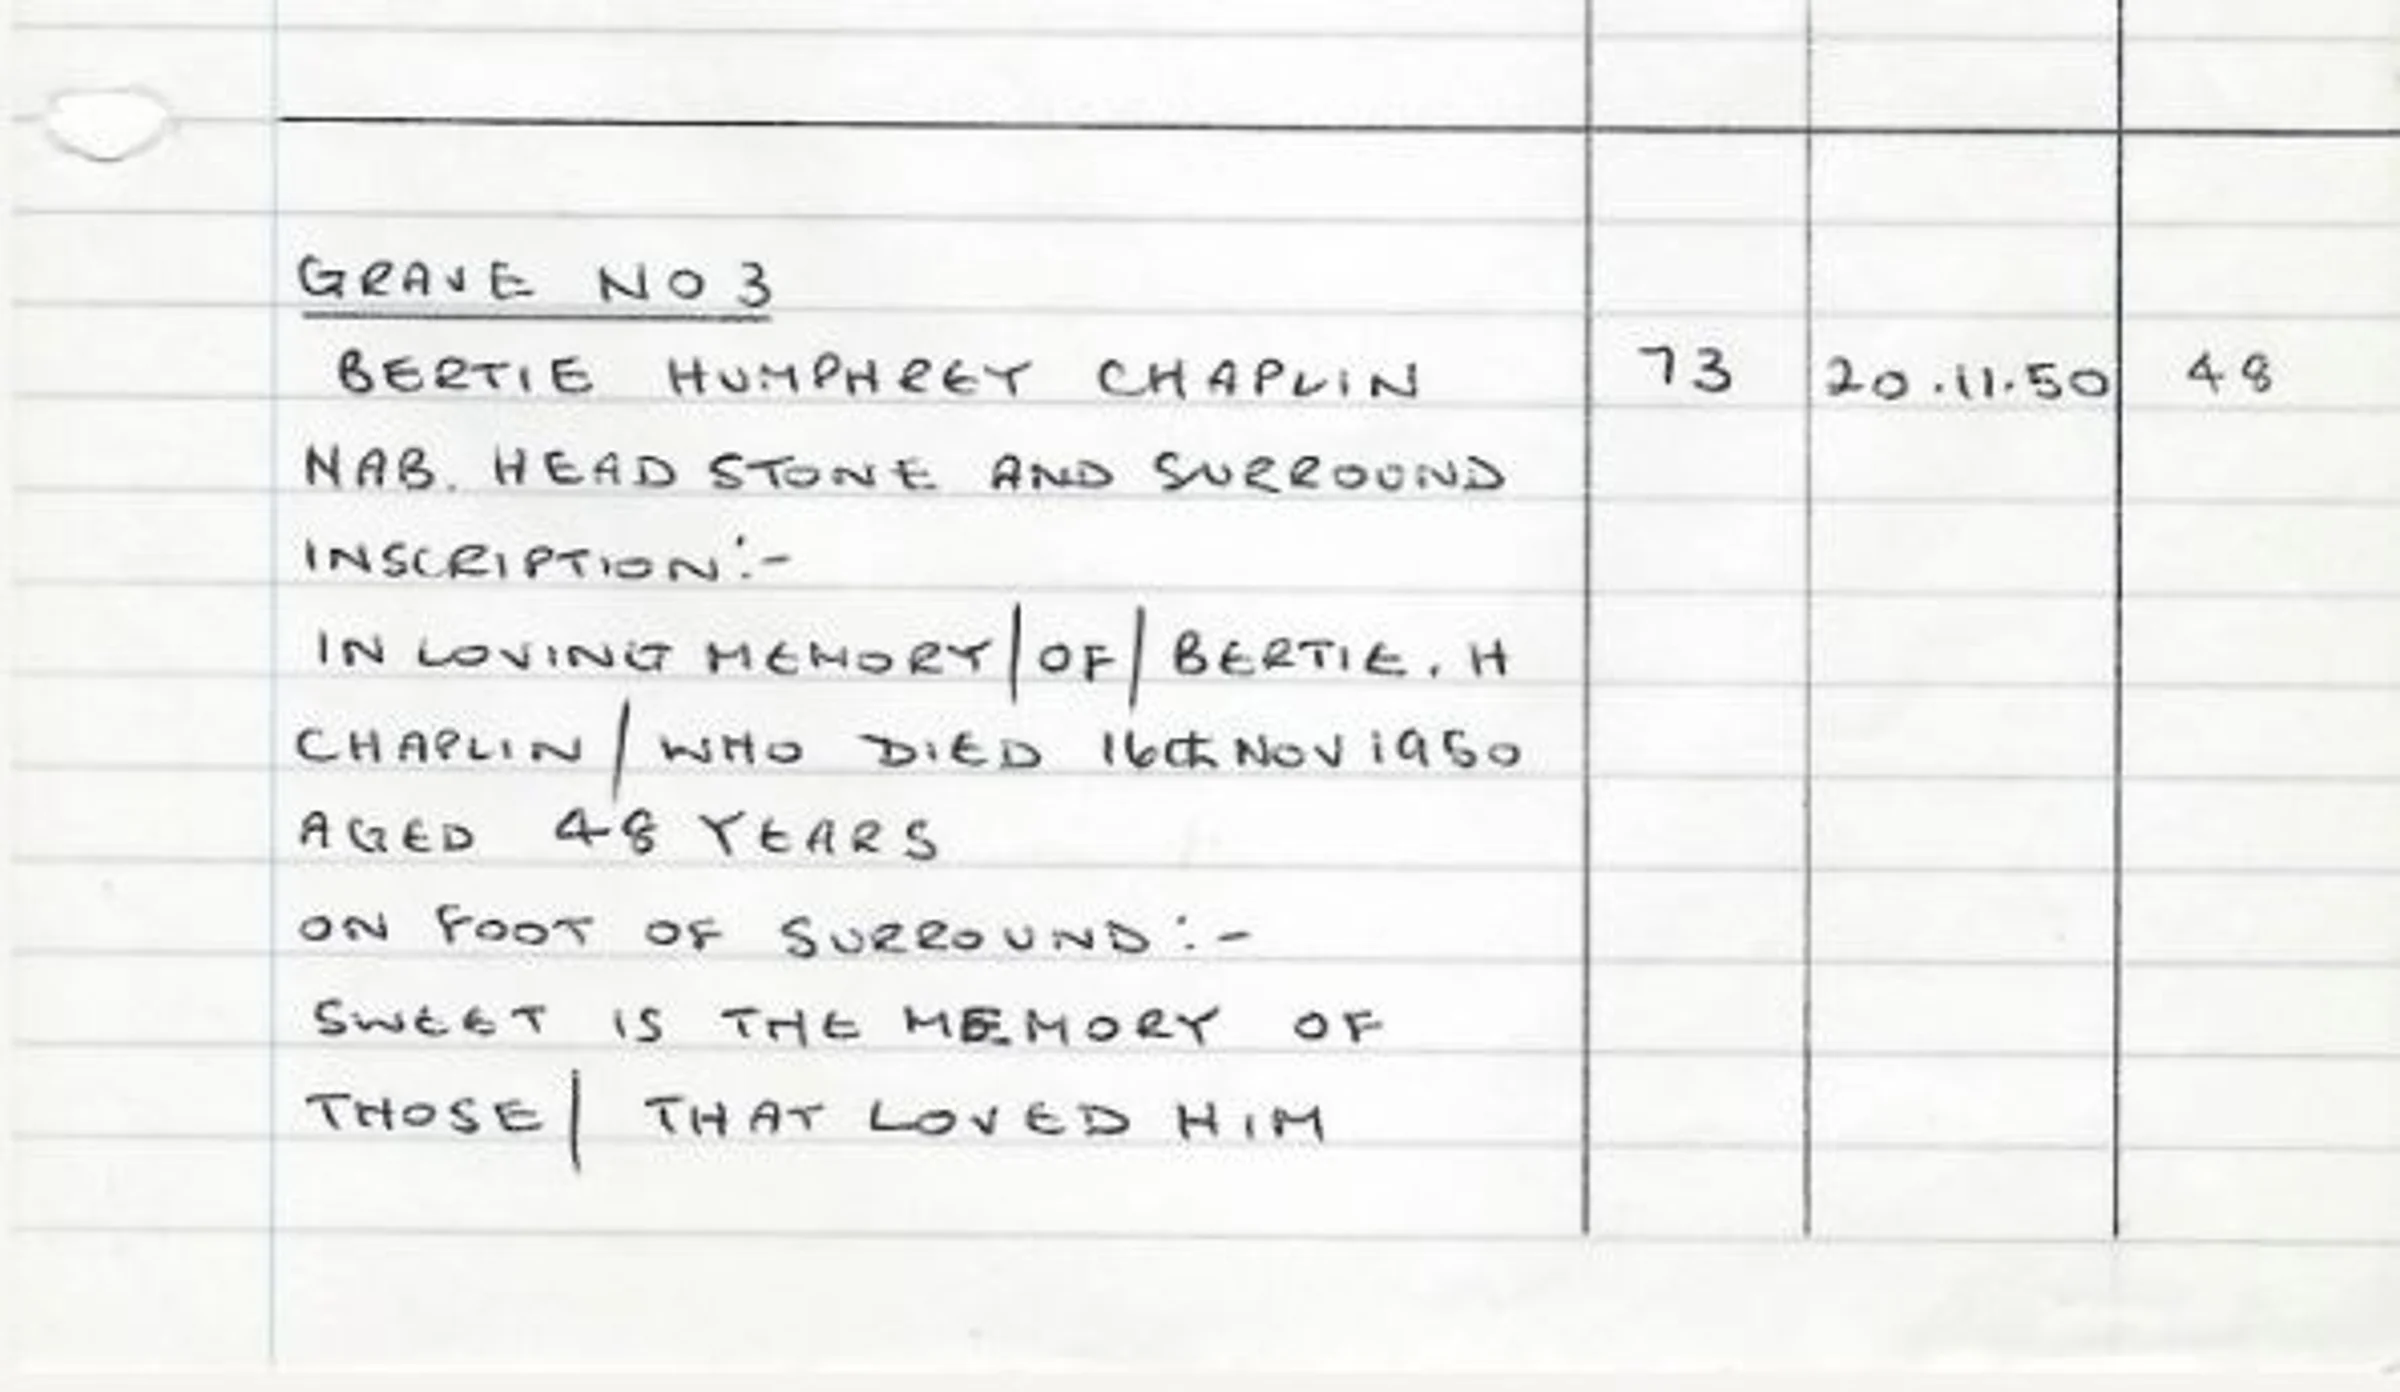 GRAVE NO 3
BERTIE HUMPHREY CHAPLIN 73 20.11.50 48
NAB. HEAD STONE AND SURROUND
INSCRIPTION:-
IN LOVING MEMORY/OF/BERTIE. H
CHAPLIN/WHO DIED 16th NOV 1950
AGED 48 YEARS
ON FOOT OF SURROUND:-
SWEET IS THE MEMORY OF
THOSE/ THAT LOVED HIM